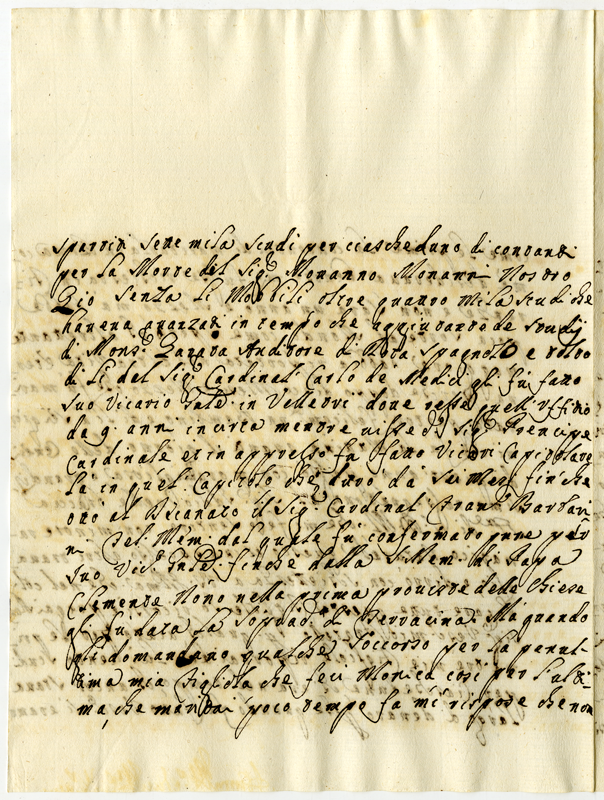 spartiti sette mila scudi per ciascheduno di contanti
per La Morte del Sigr. Monanno Monanni Nostro
Zio senza Li Mobbili oltre quattro mila scudi che
haveva avanzati in tempo che
di Monsr. Zarata Auditore di Rota Spagnolo e tolto
di li del Sigr. Cardinal Carlo de Medici gli fu fatto
suo Vicario Gnle. in Velletri dove resse quell'Uffitio
da 9. anni incirca mentre visse d. Sigr. Prencipe
Cardinale et in appresso fu fatto Vicario Capitolare
la in quel Capitolo che durò da sei Mesi finche
ottò al Decanato il Sigr. Cardinal Franco. Barbari
ni fel: Mem: dal quale fu confermato pure per
suo Vico. Gnle. finche dalla S. Mem. di Papa
Clemente Nono nella prima provista delle Chiese
gli fu data la di Ma quando
gli domandano qualche soccorso per la penul-
tima mia Figliola che feci Monica così per l'ulti-
ma, che maritai poco tempo fa mi rispose che non